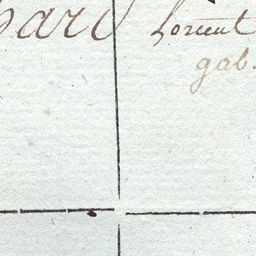 pard Lorient
gab.